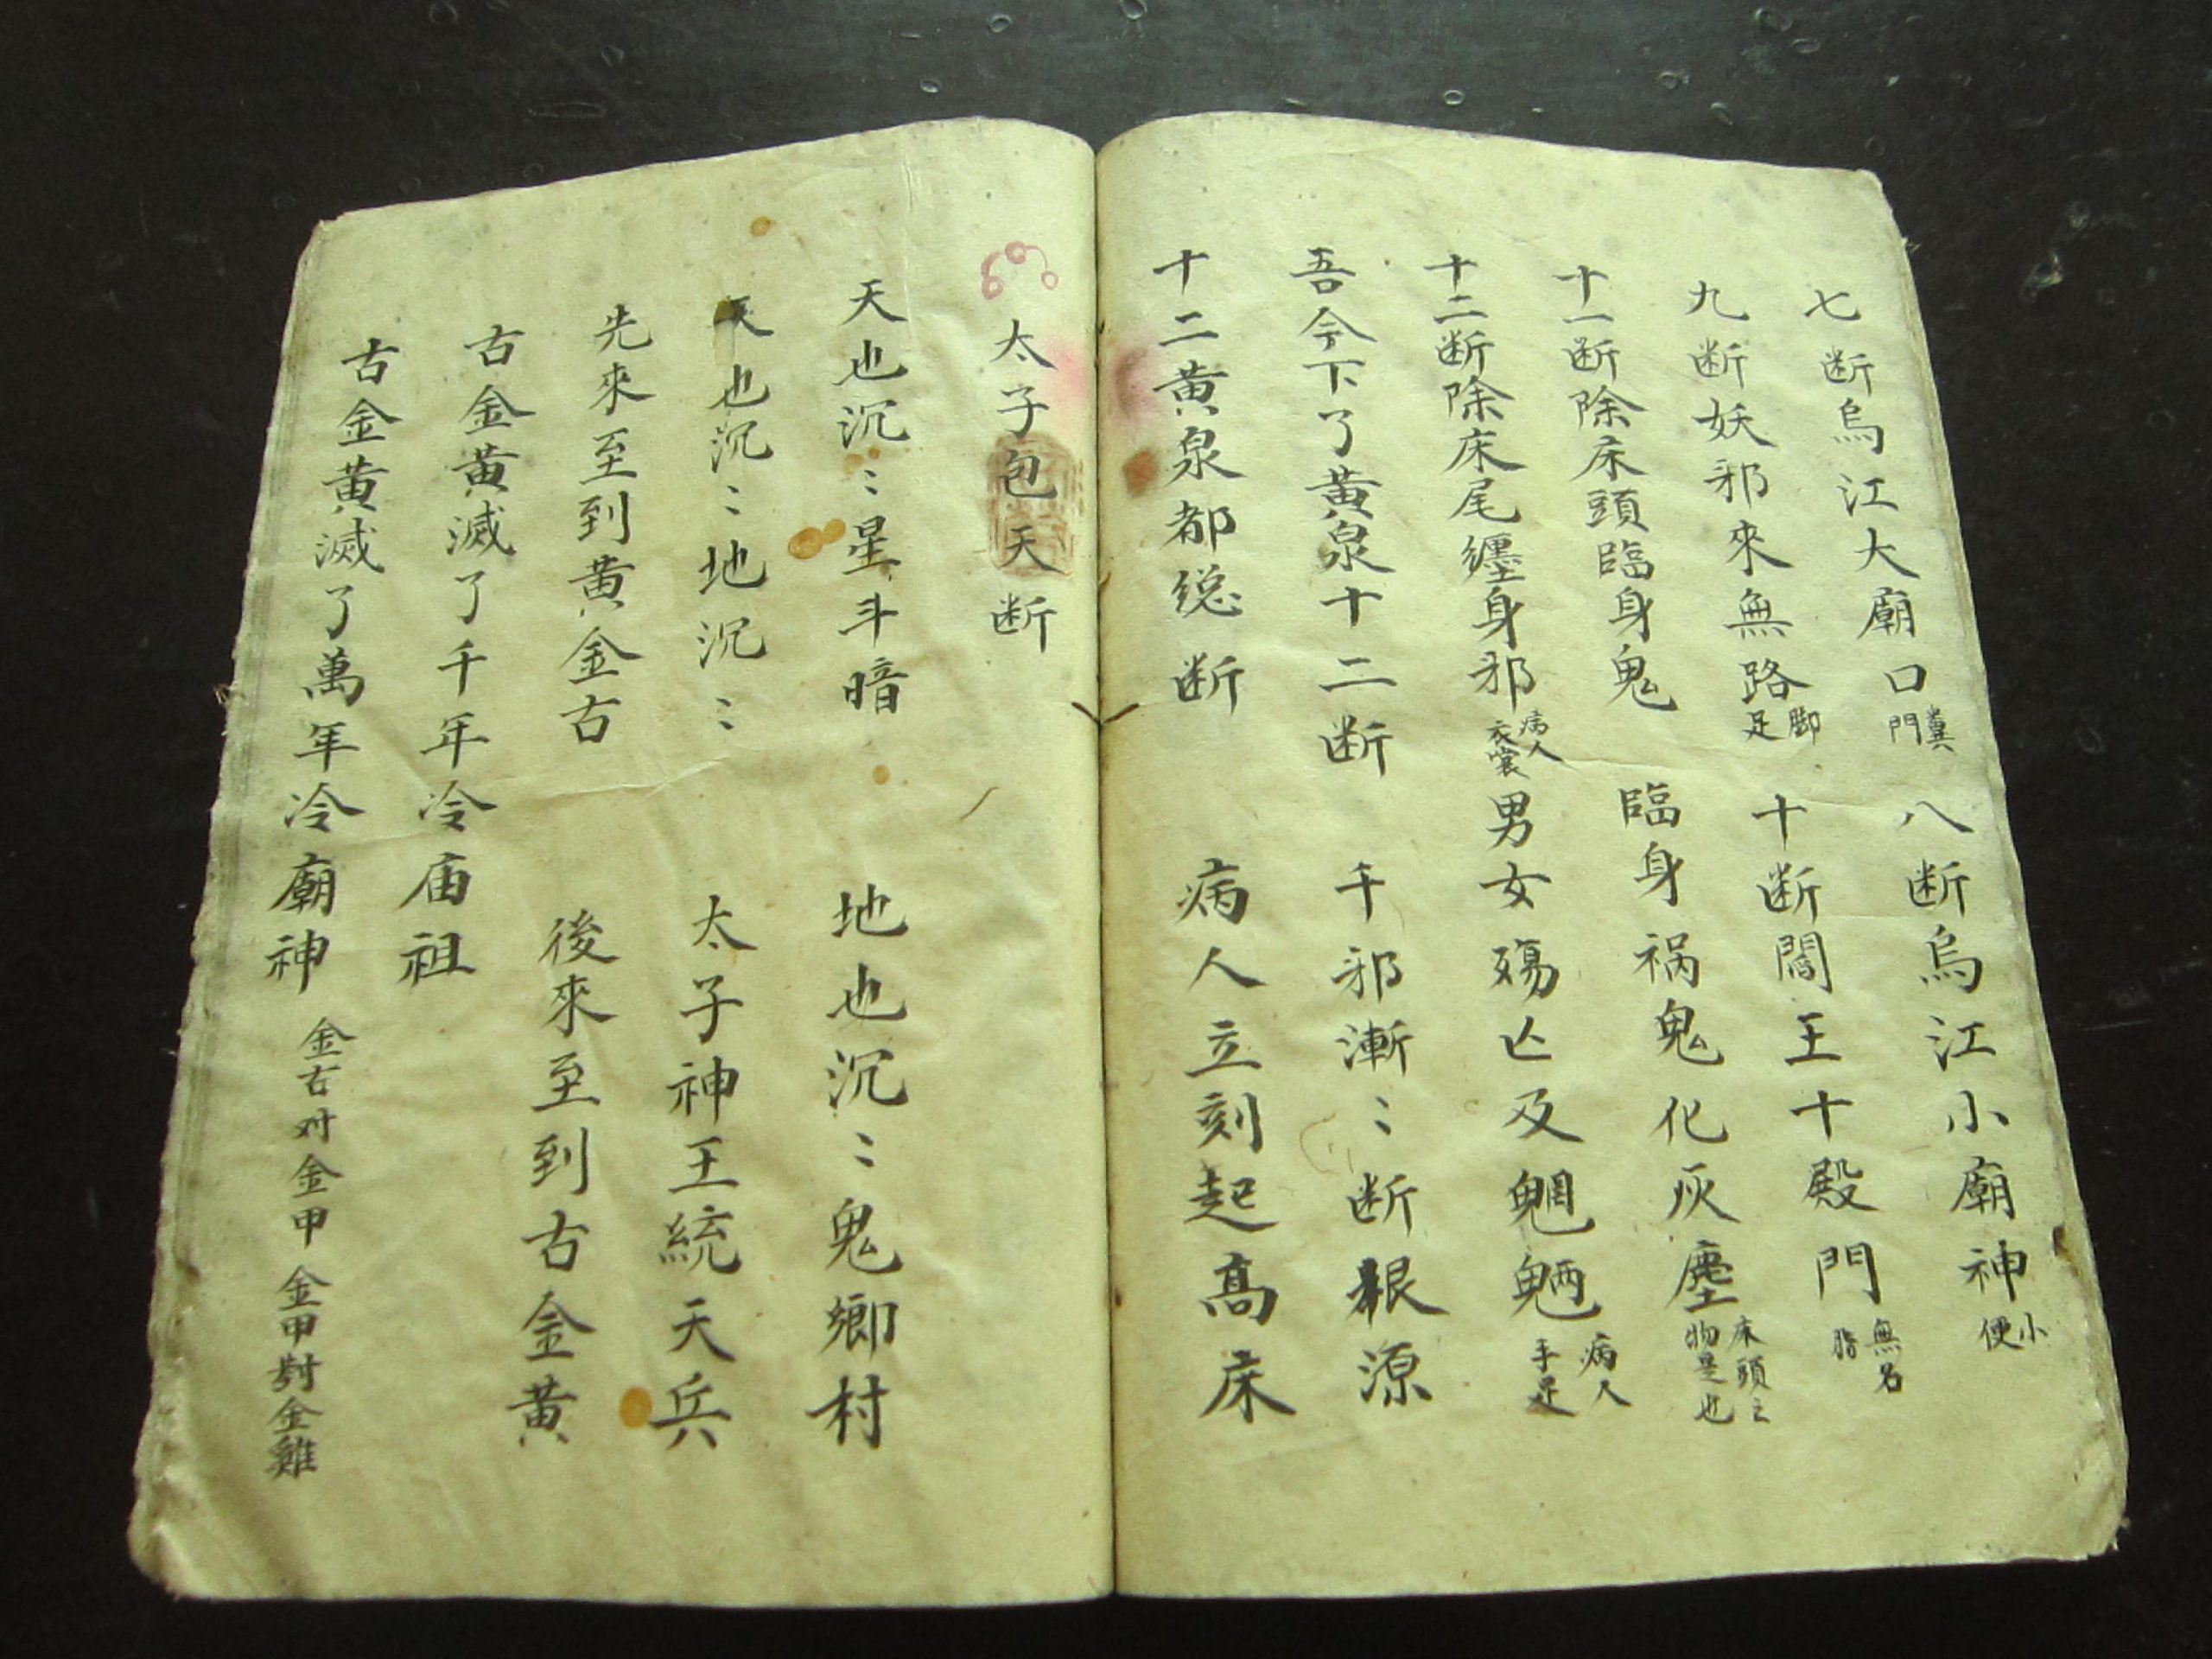 七断烏江大廟口糞門 八断烏江小廟神小便
九断妖邪來無路脚足 十断閻王十殿門無名指
十一断除床頭臨身鬼 臨身祸鬼化灰塵床頭之物是也
十二断除床尾纏身邪病人衣裳 男女殤亡及魍魎病人手足
吾今下了黃泉十二断 千邪漸〻断根源
十二黃泉都総断 病人立刻起高床
太子包天断
天也沉〻星斗暗 地也沉〻鬼鄉村
天也沉〻地沉〻 太子神王統天兵
先來至到黃金古 後來至到古金黃
古金黃滅了千年冷庙祖
古金黃滅了萬年冷廟神 金古对金甲 金甲對金雞